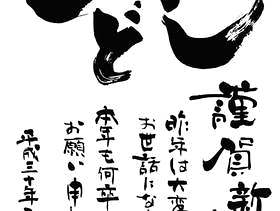 ど
謹賀新
昨年は大変
お世話にな
本年も何卒
お願い申
平成三十年